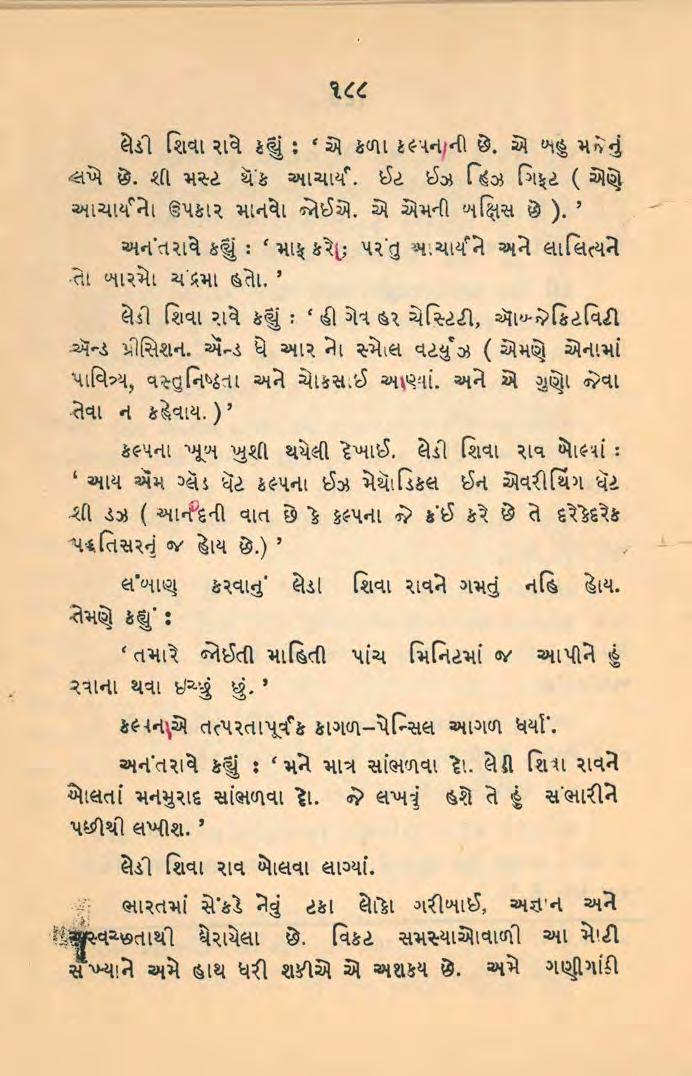 ૧૮૮
લેડી શિવા રાવે કહ્યું : ‘ એ કળા કલ્પનાની છે. એ બહુ મઝેનું
લખે છે. શી મસ્ટ થૅંક આચાર્ય. ઈટ ઈઝ હિઝ ગિફ્ટ ( એણે
આચાર્યનો ઉપકાર માનવો જોઈએ. એ એમની બક્ષિસ છે ). ’
અનંતરાવે કહ્યું : ‘ માફ કરો; પરંતુ આચાર્યને અને લાલિત્યને
તો બારમો ચંદ્રમા હતો. ’
લેડી શિવા રાવે કહ્યું : ‘ હી ગેવ હર ચેસ્ટિટી, ઑબ્જેકિટવિટી
ઍન્ડ પ્રીસિશન. ઍન્ડ ધે આર નો સ્મોલ વટર્યુઝ ( એમણે એનામાં
પાવિત્ર્ય, વસ્તુનિષ્ઠતા અને ચોકસાઈ આણ્યાં. અને એ ગુણો જેવા
તેવા ન કહેવાય. ) ’
કલ્પના ખૂબ ખુશી થયેલી દેખાઈ. લેડી શિવા રાવ બોલ્યાં :
‘ આય ઍમ ગ્લૅડ ધૅટ કલ્પના ઈઝ મેથૉડિકલ ઈન એવરીથિંગ ધૅટ
શી ડઝ ( આનંદની વાત છે કે કલ્પના જે કંઈ કરે છે તે દરેકેદરેક
પદ્ધતિસરનું જ હોય છે.) ’
લંબાણ કરવાનું લેડી શિવા રાવને ગમતું નહિ હોય.
તેમણે કહ્યું :
‘ તમારે જોઈતી માહિતી પાંચ મિનિટમાં જ આપીને હું
રવાના થવા ઇચ્છું છું. ’
કલ્પનાએ તત્પરતાપૂર્વક કાગળ–પેન્સિલ આગળ ધર્યાં.
અનંતરાવે કહ્યું : ‘ મને માત્ર સાંભળવા દો. લેડી શિવા રાવને
બોલતાં મનમુરાદ સાંભળવા દો. જે લખવું હશે તે હું સંભારીને
પછીથી લખીશ. ’
લેડી શિવા રાવ બોલવા લાગ્યાં.
ભારતમાં સેંકડે નેવું ટકા લોકો ગરીબાઈ, અજ્ઞાન અને
અસ્વચ્છતાથી ઘેરાયેલા છે. વિકટ સમસ્યાઓવાળી આ મોટી
સંખ્યાને અમે હાથ ધરી શકીએ એ અશક્ય છે. અમે ગણીગાંઠી